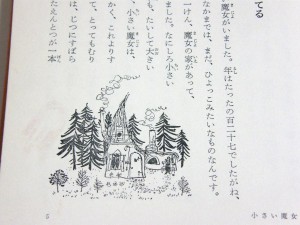 てる
魔女がいました。年はたったの百二十七でしたがね、
なかまでは、まだ、ひよっこみたいなものなんです。
けん、魔女の家があって、
ました。なにしろ小さい
も、たいして大きい
小さい魔女は、
かく、これよりす
て、とってもむり
は、じつにすばら
たえんとつが一本
5
小さい魔女